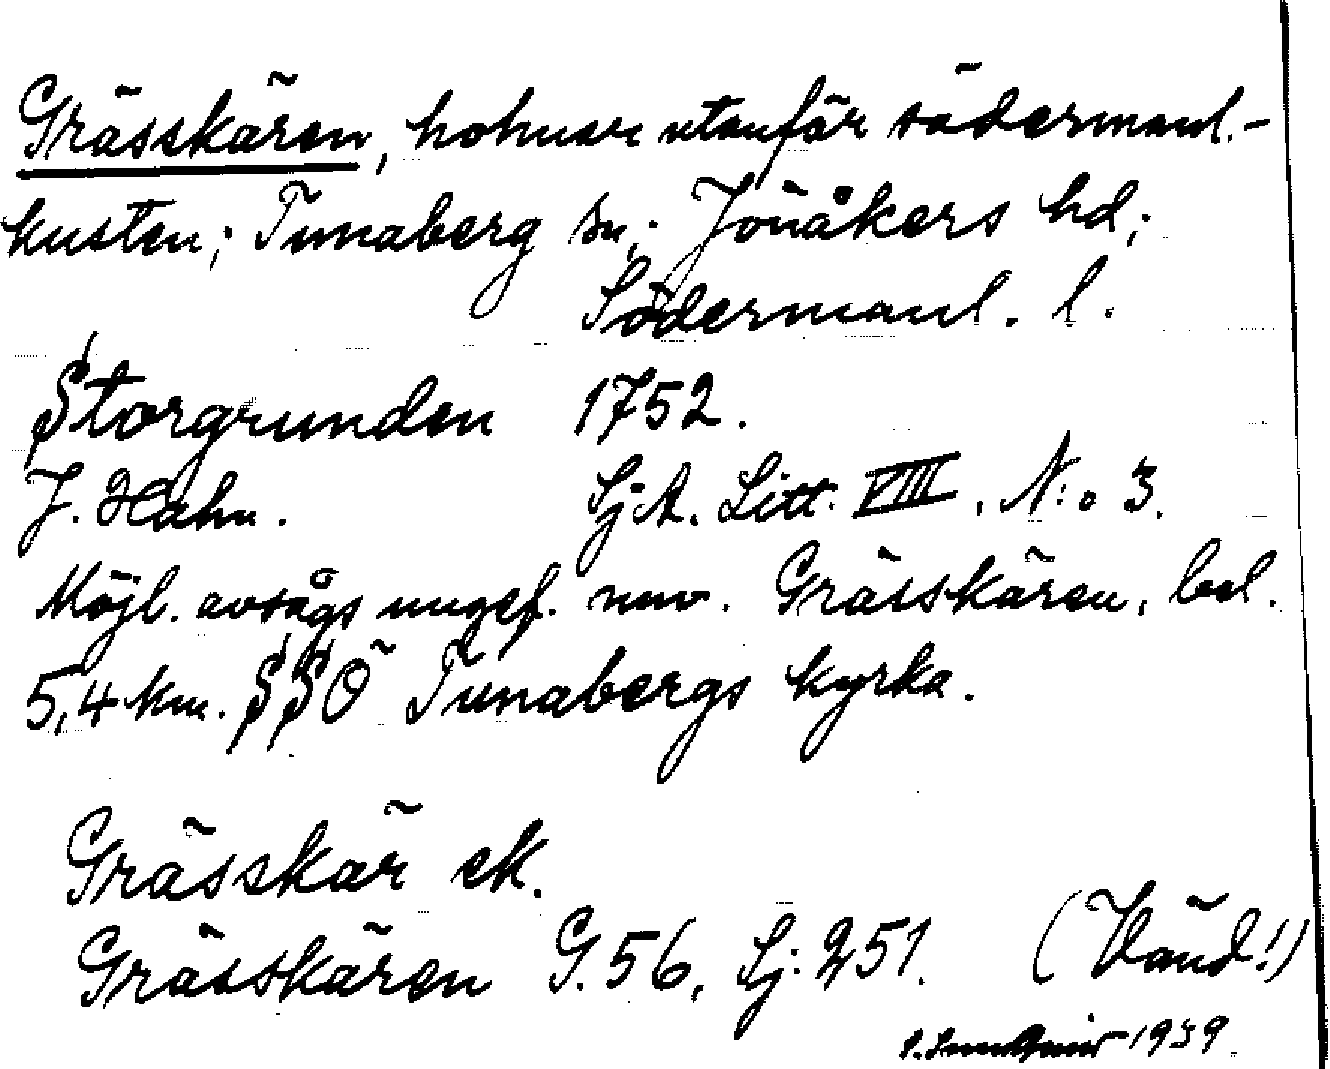 Grässkären, holmar utanför södermanl.-
kusten; Tunaberg sn; Jönåkers hd;
Södermanl. l.
Storgrunden 1752.
J. Hahn. SjA. Litt. VIII. N:o 3.
Möjl. avsågs ungef. nuv. Grässkären, bel.
5,4 km. SSÖ Tunabergs kyrka.
Grässkär ek.
Grässkären G. 56, Sj. 251. (Vänd!)
1939.